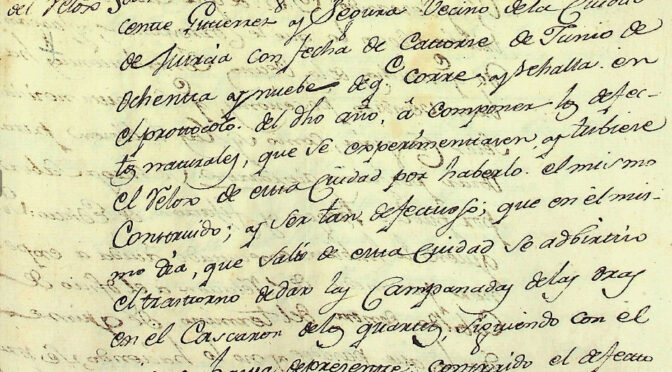 del Relox
cente Gutierrez y Segura Vecino de la Ciudad
de Murcia con fecha de Catorze de Junio de
ochenta y nuebe de q.e corre, y se halla en
el protocolo del dho año, á componer los defec-
tos naturales, que se experimentaren, y tubiere
el Relox de esta Ciudad por haberlo el mismo
Construido; y ser tan defectuoso; que en el mis-
mo dia, que salió de esta Ciudad se adbirtió
el trastorno de dar las Campanadas de las oras
en el Cascaron de los quartos, siguiendo con el
de presente, Corregido el defecto